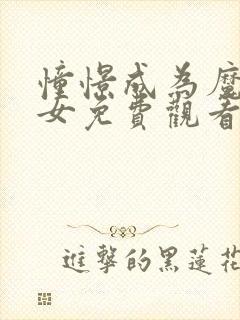 憧憬成為魔
女免費觀看
進擊的黑蓮花